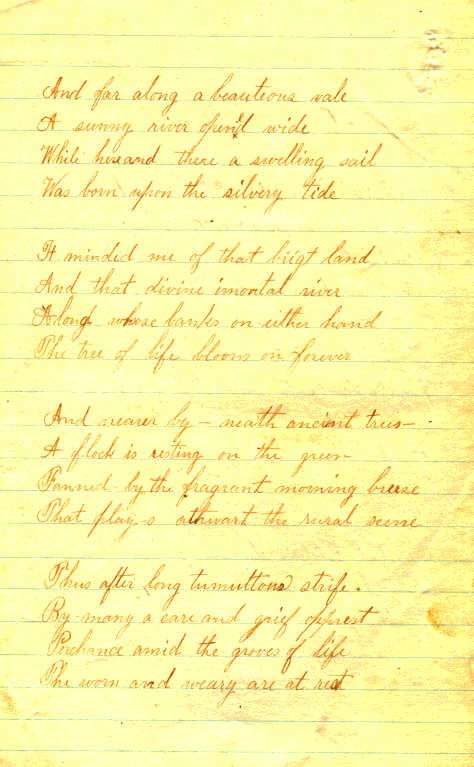 And far along a beauteous vale
A sunny river open'd wide
While here and there a swelling sail
Was born upon the silvery tide
It minded me of that brigt land
And that divine imortal river
Along whose banks on either hand
The tree of life blooms on forever
And nearer by - neath ancient trees -
A flock is resting on the green
Fanned by the fragrant morning breese
That play-s athwart the rural scene
Thus after long tumultous strife.
By many a care and grief opprest
Perchance amid the groves of life
The worn and weary are at rest